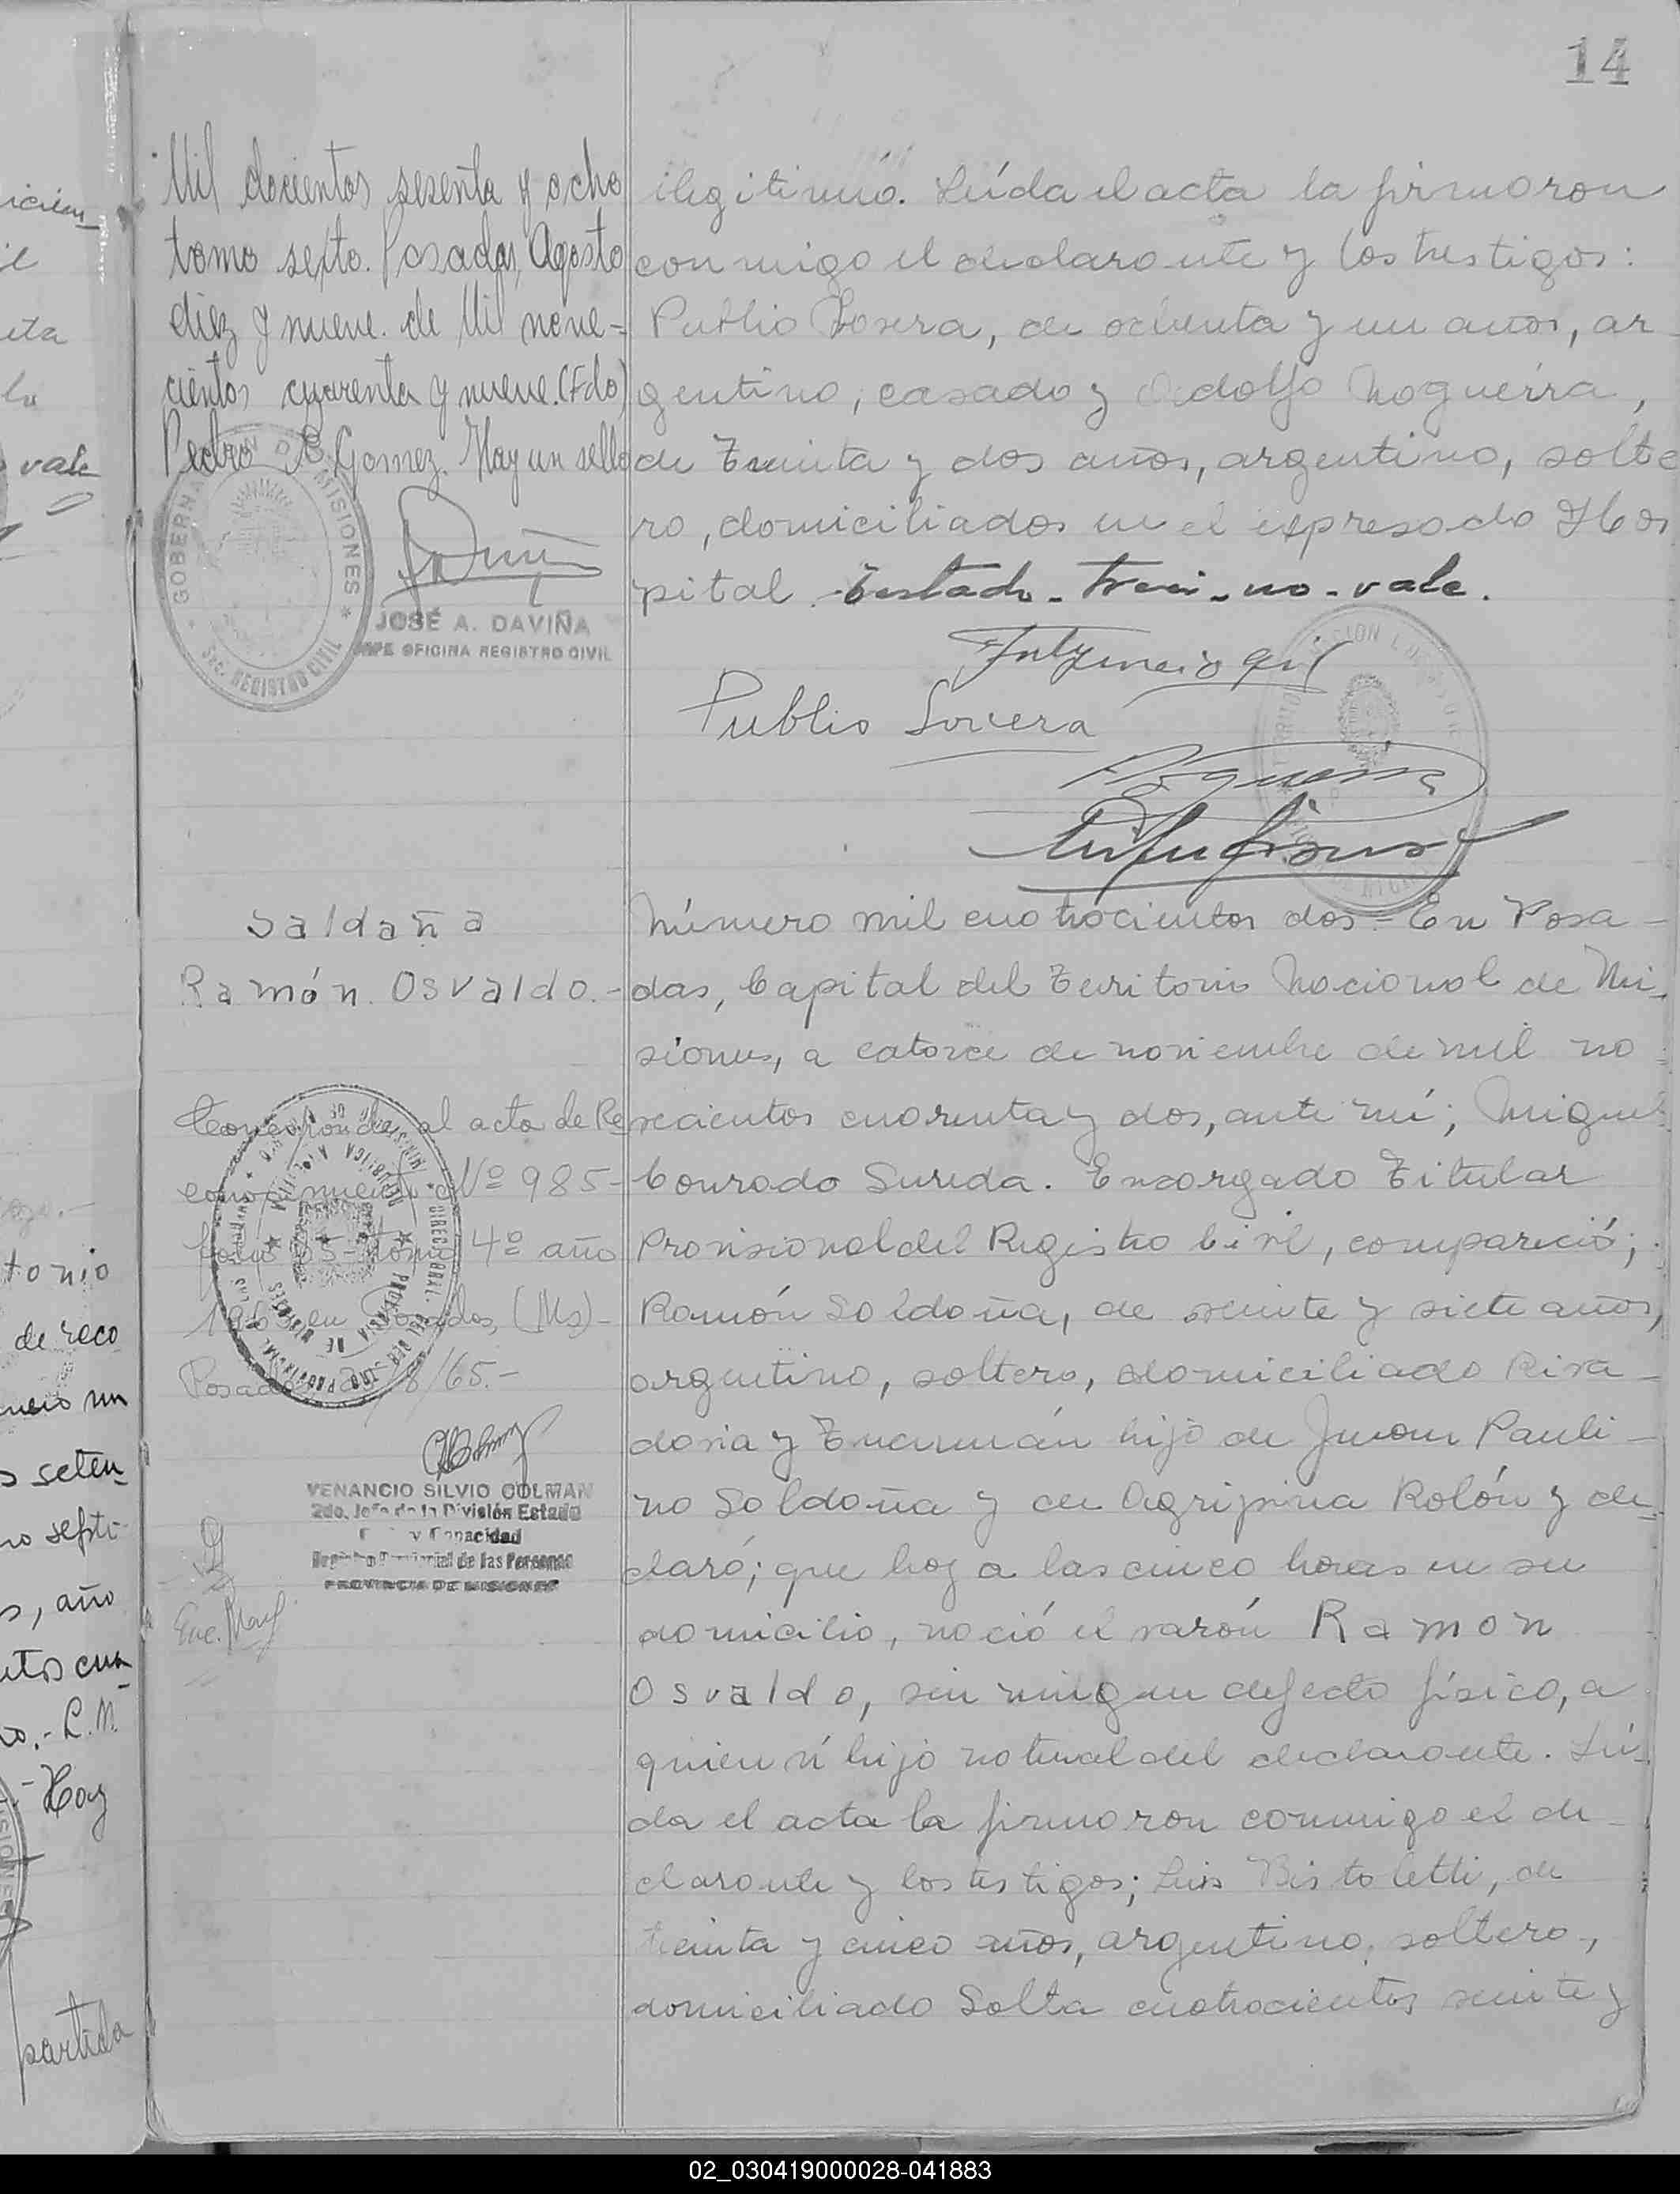 14
Mil docientos sesenta y ocho
tomo sexto. Posadas, Agosto
diez y nueve de Mil nove-
cientos cuarenta y nueve. (Fdo)
Pedro B. Gomez. Hay un sello
GOBERNACION DE MISIONES
SEC. REGISTRO CIVIL
JOSÉ A. DAVIÑA
JEFE OFICINA REGISTRO CIVIL
ilegitimo. Leída el acta la firmaron
conmigo el declarante y los testigos:
Publio Sosera, de ochenta y un años, ar
gentino, casado y Adolfo Noguerra,
de Treinta y dos años, argentino, solte
ro, domiciliados en el expresado Hos
pital. Testado - no - vale.
Publio
Saldaña
Ramón Osvaldo.-
Corresponde al acta de Re
conocimiento Nº 985-
folio tomo 4º año
en Posadas, (Ms)-
Posadas /8/65.-
VENANCIO SILVIO COLMAN
2do. Jefe de la División Estado
Civil y Capacidad
Registro Provincial de las Personas
PROVINCIA DE MISIONES
Número mil cuatrocientos dos - En Posa-
das, Capital del Territorio Nacional de Mi-
siones, a catorce de noviembre de mil no
vecientos cuarenta y dos, ante mí; Miguel
Conrado Sureda. Encargado Titular
Provisional del Registro Civil, compareció;
Ramón Saldaña, de veinte y siete años,
argentino, soltero, domiciliado Riva-
davia y Tucumán hijo de Juan Pauli-
no Saldaña y de Agripina Rolón y de-
claró; que hoy a las cinco horas en su
domicilio, nació el varón Ramón
Osvaldo, sin ningun defecto físico, a
quien ví hijo natural del declarante. Leí-
da el acta la firmaron conmigo el de-
clarante y los testigos; Luis Bistoletti, de
treinta y cinco años, argentino, soltero,
domiciliado Salta cuatrocientos veinte y
tonio
de reco
seten-
s, año
Hay
vale
partida
02_030419000028-041883